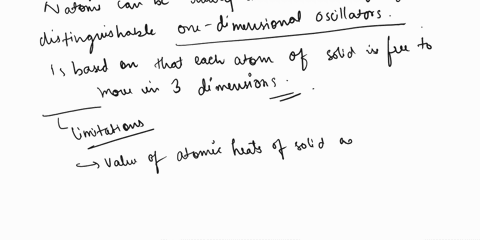 N atoms can be
distinguishable one-dimensional oscillators.
Is based on that each atom of solid is free to
move in 3 dimensions.
limitations
→ value of atomic heats of solid as